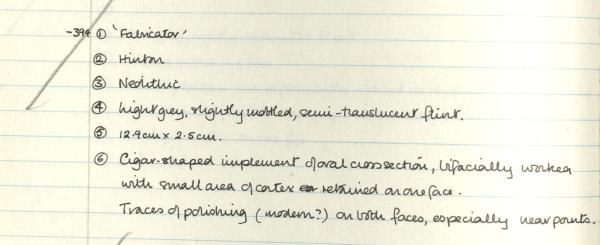 -394 ① 'Fabricator'
② Hinton
③ Neolithic
④ Light grey, slightly mottled, semi-translucent flint.
⑤ 12.9cm x 2.5cm.
⑥ Cigar-shaped implement of oval cross section, bifacially worked
with small area of cortex retained on one face.
Traces of polishing (modern?) on both faces, especially near points.